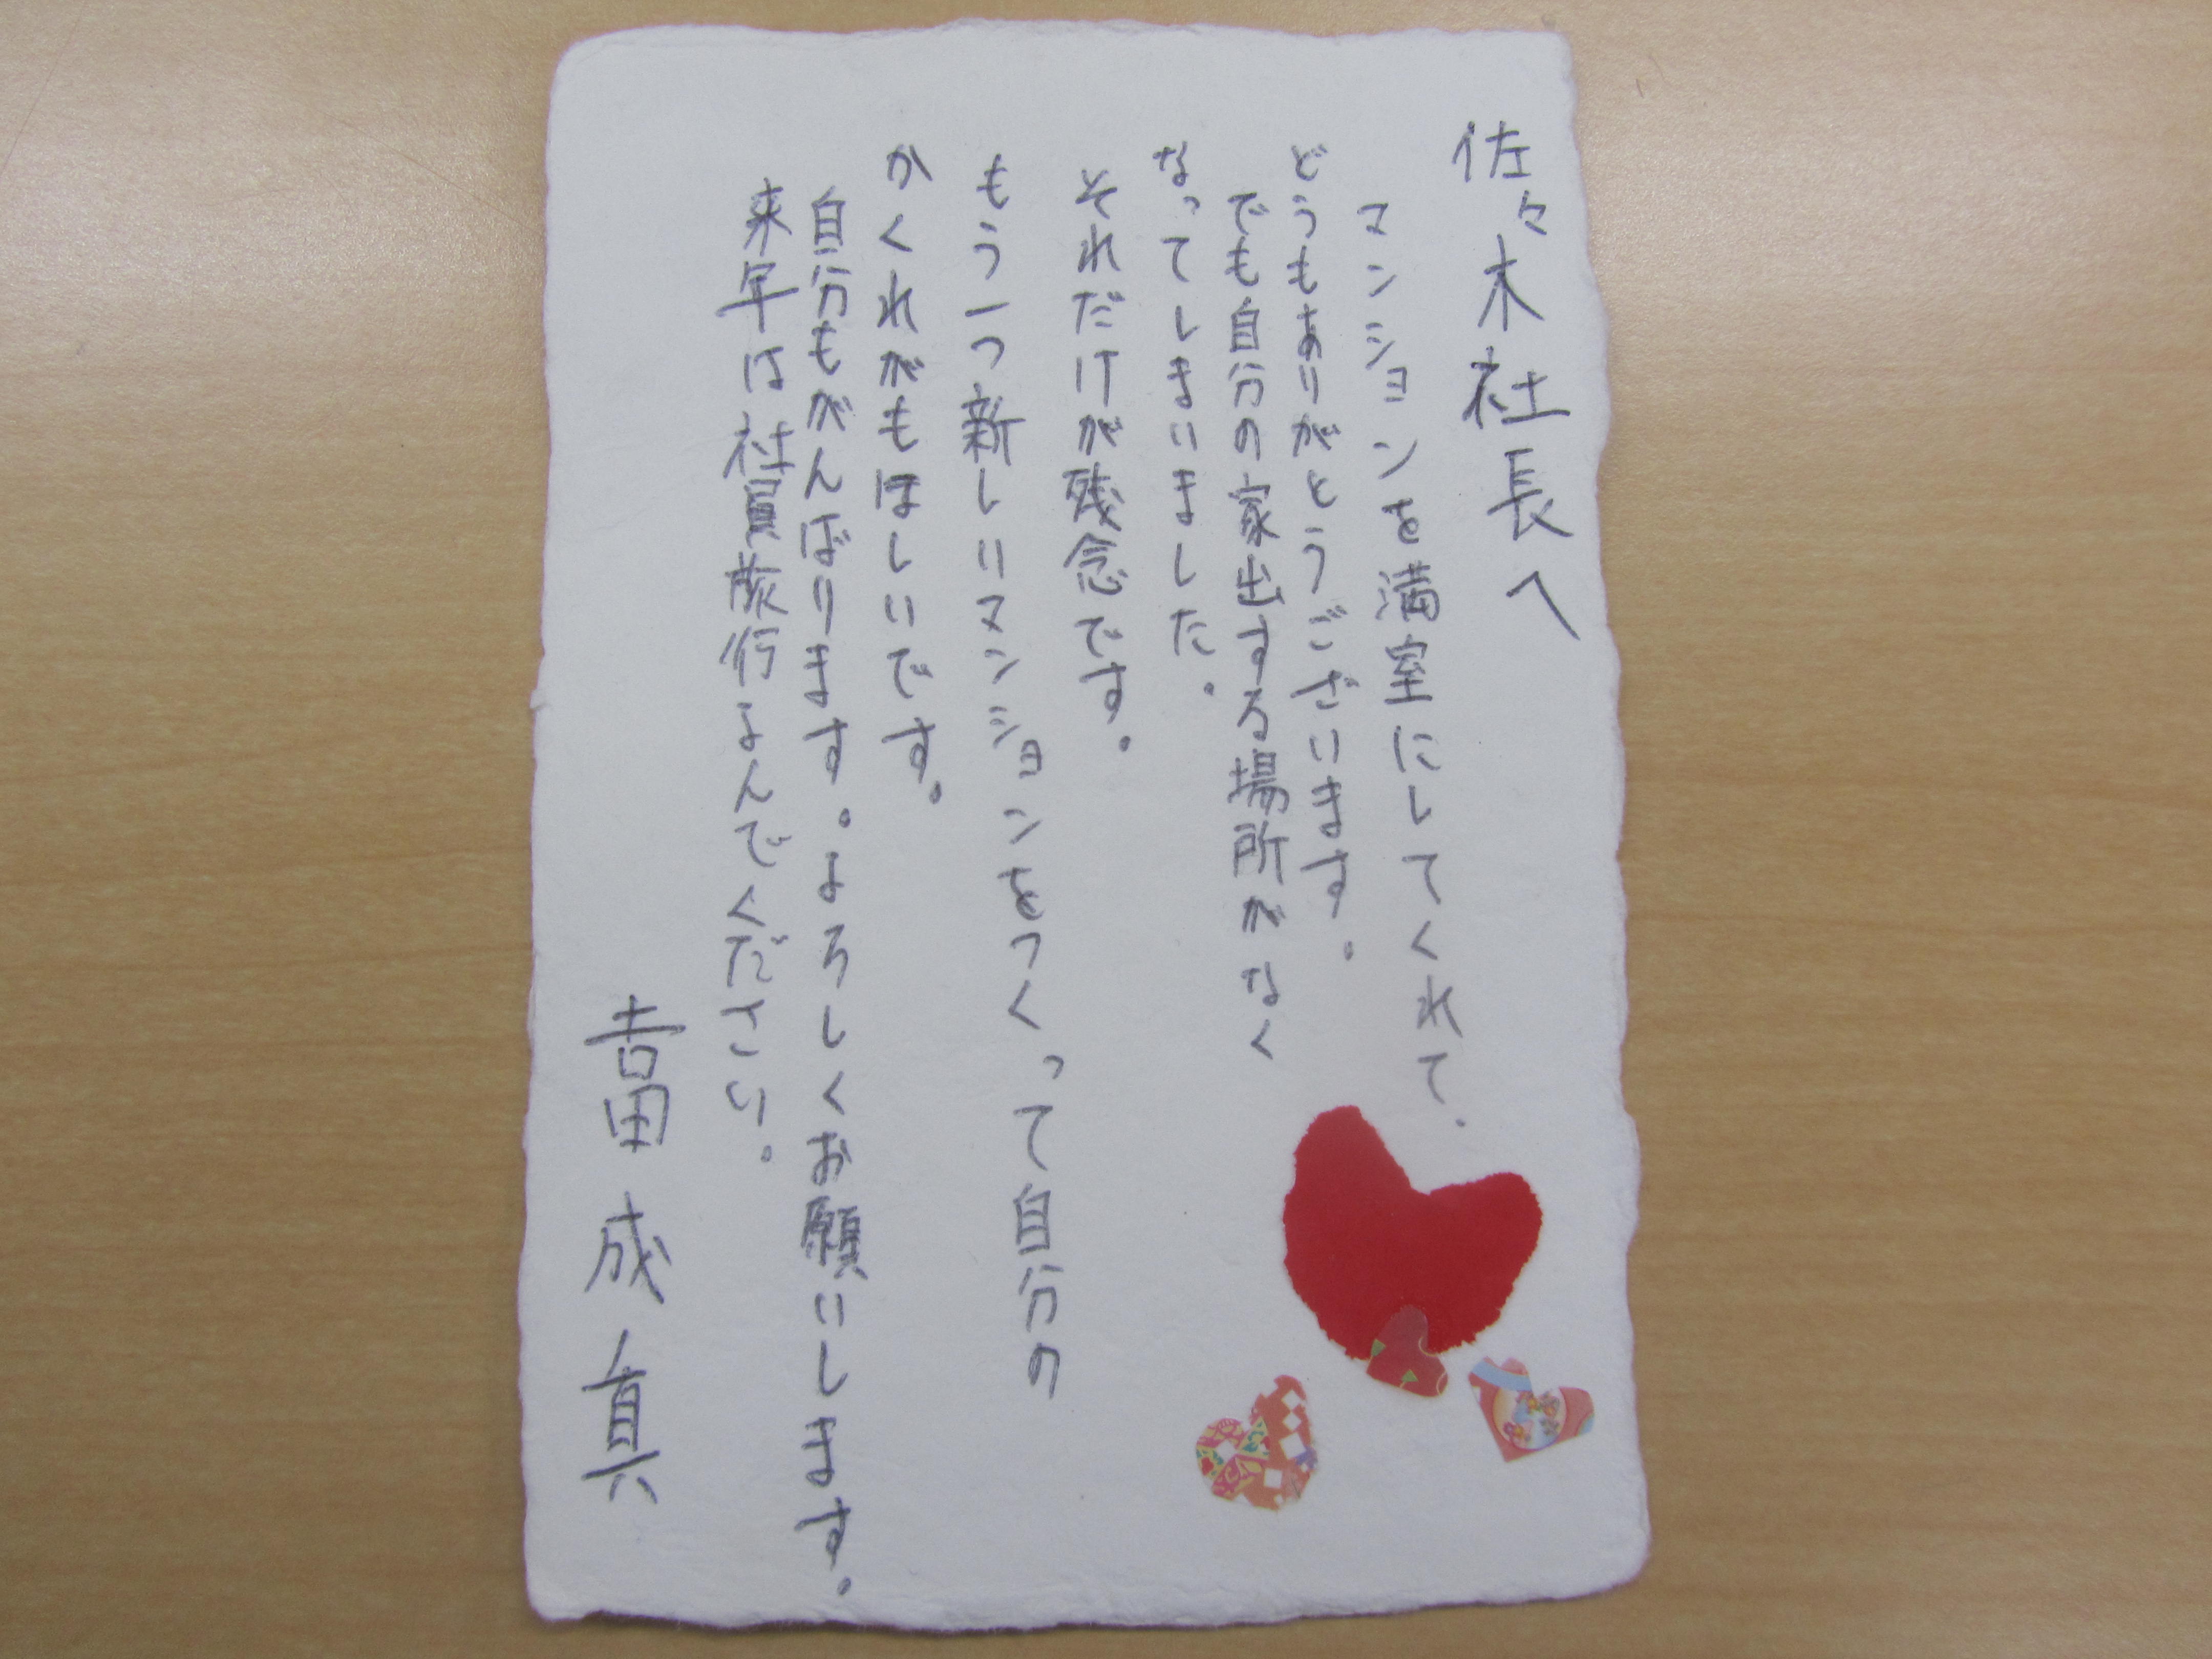 佐々木社長へ
マンションを満室にしてくれて.
どうもありがとうございます。
でも自分の家出する場所がなく
なってしまいました。
それだけが残念です。
もう一つ新しいマンションをつくって自分の
かくれがもほしいです。
自分もがんばります。よろしくお願いします。
来年は社員旅行よんでください。
吉田成真